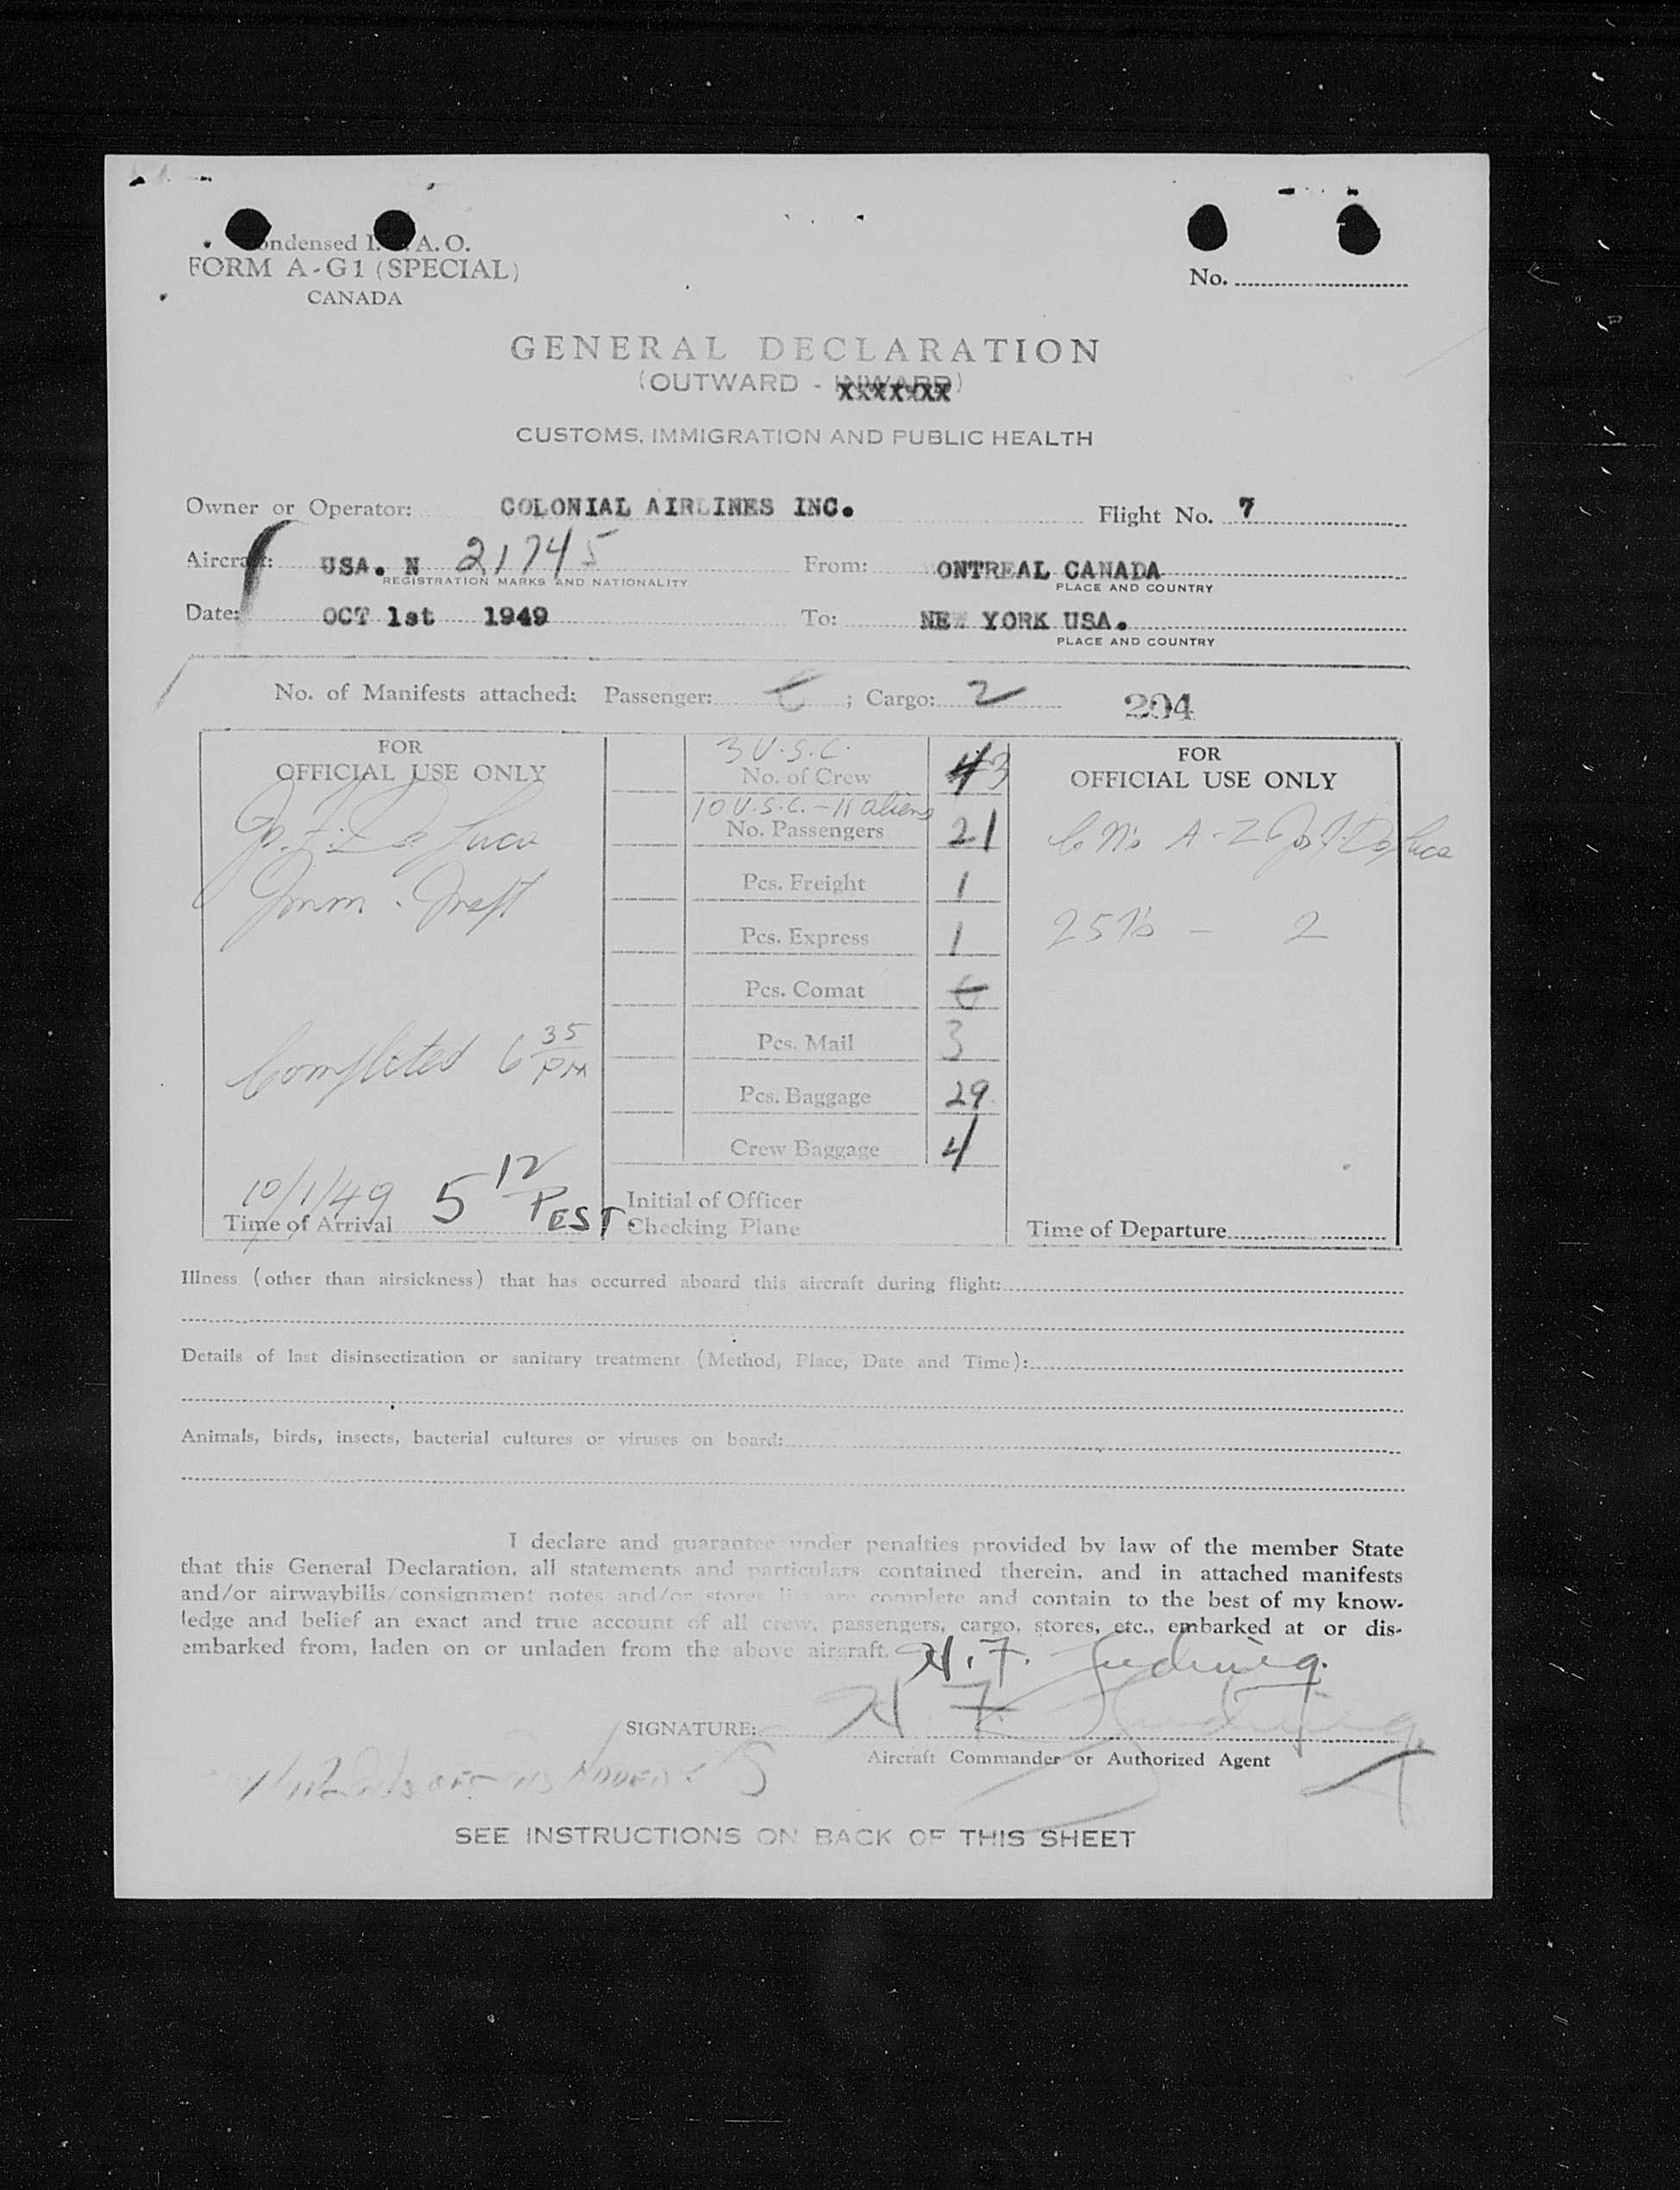 ondensed I. A. O.
FORM A-G1 (SPECIAL)
CANADA
No.
GENERAL DECLARATION
(OUTWARD - INWARD)
XXXXXXX
CUSTOMS, IMMIGRATION AND PUBLIC HEALTH
Owner or Operator: COLONIAL AIRLINES INC. Flight No. 7
Aircraft: USA. N 21745 From: ONTREAL CANADA
REGISTRATION MARKS AND NATIONALITY PLACE AND COUNTRY
Date: OCT 1st 1949 To: NEW YORK USA.
PLACE AND COUNTRY
No. of Manifests attached: Passenger: ; Cargo: 2 204
FOR
OFFICIAL USE ONLY
Imm.
Completed 6 35 PM
10/1/49 5 12 P EST
Time of Arrival
3 U.S.C.
No. of Crew 4 3
10 U.S.C. - 11 aliens
No. Passengers 21
Pcs. Freight 1
Pcs. Express 1
Pcs. Comat
Pcs. Mail 3
Pcs. Baggage 29
Crew Baggage 4
Initial of Officer
Checking Plane
FOR
OFFICIAL USE ONLY
A-Z
2
Time of Departure
Illness (other than airsickness) that has occurred aboard this aircraft during flight:
Details of last disinsectization or sanitary treatment (Method, Place, Date and Time):
Animals, birds, insects, bacterial cultures or viruses on board:
I declare and guarantee under penalties provided by law of the member State
that this General Declaration, all statements and particulars contained therein, and in attached manifests
and/or airwaybills/consignment notes and/or stores list are complete and contain to the best of my know-
ledge and belief an exact and true account of all crew, passengers, cargo, stores, etc., embarked at or dis-
embarked from, laden on or unladen from the above aircraft.
H. F. Ludwig.
SIGNATURE: H F Ludwig
Aircraft Commander or Authorized Agent
SEE INSTRUCTIONS ON BACK OF THIS SHEET